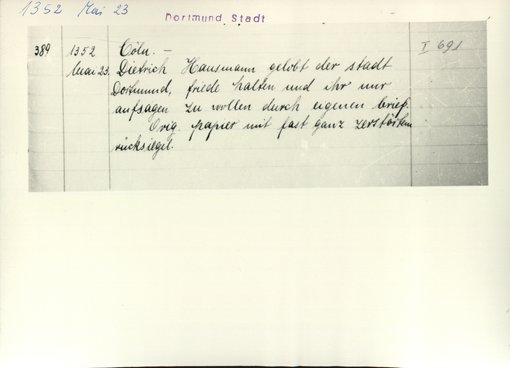 1352 Mai 23
Dortmund, Stadt
389 1352 Cöln. — I 691
Mai 23. Dietrich Hausmann gelobt der stadt
Dortmund, friede halten und ihr nur
aufsagen zu wollen durch eigenen brief.
Orig. papier mit fast ganz zerstörtem
rücksiegel.